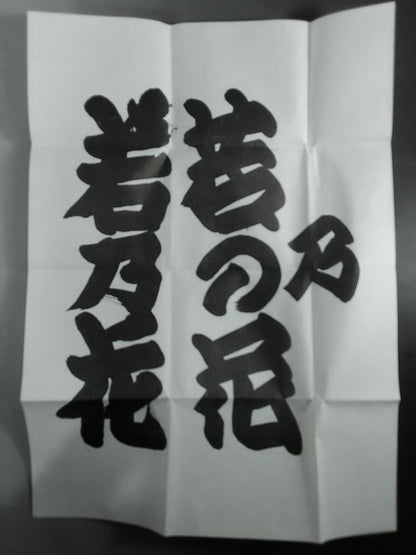 乃
若の花
若乃花